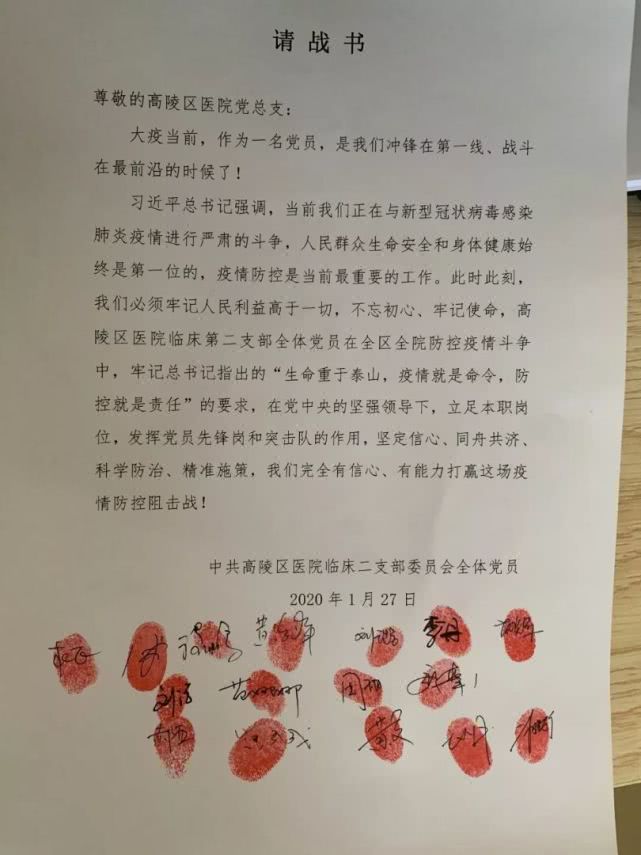 请战书
尊敬的高陵区医院党总支：
大疫当前，作为一名党员，是我们冲锋在第一线、战斗
在最前沿的时候了！
习近平总书记强调，当前我们正在与新型冠状病毒感染
肺炎疫情进行严肃的斗争，人民群众生命安全和身体健康始
终是第一位的，疫情防控是当前最重要的工作。此时此刻，
我们必须牢记人民利益高于一切，不忘初心、牢记使命，高
陵区医院临床第二支部全体党员在全区全院防控疫情斗争
中，牢记总书记指出的“生命重于泰山，疫情就是命令，防
控就是责任”的要求，在党中央的坚强领导下，立足本职岗
位，发挥党员先锋岗和突击队的作用，坚定信心、同舟共济、
科学防治、精准施策，我们完全有信心、有能力打赢这场疫
情防控阻击战！
中共高陵区医院临床二支部委员会全体党员
2020年1月27日
李丹